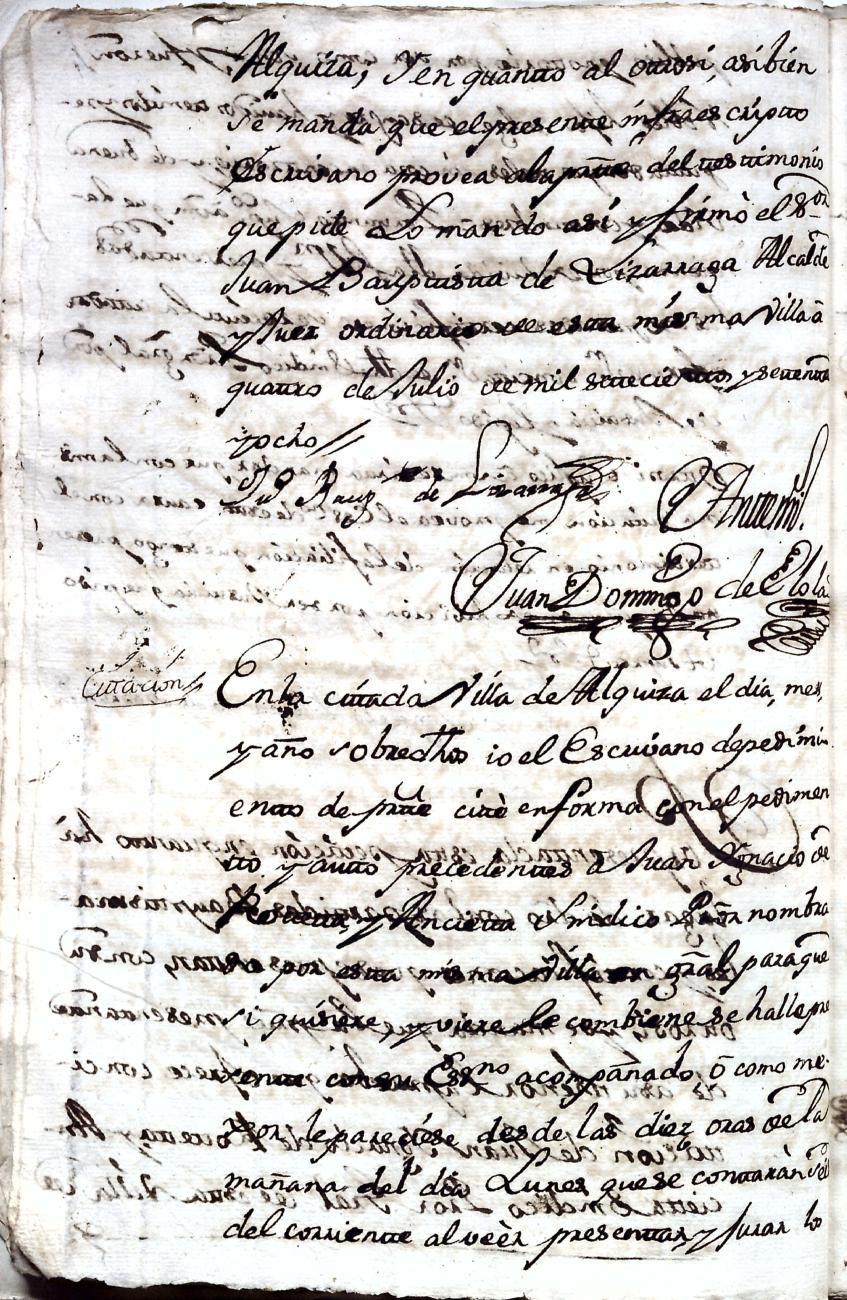 Alquiza, Y en quanto al otrosi, asibien
se manda que el presente infraescripto
Escrivano provea ala prãte del testimonio
que pide Lo mandó así y firmò el S.or
Juan Bauptista de Lizarraga Alcalde
y Juez ordinario de esta misma Villa à
quatro de Julio de mil setecientos y setenta
yocho //
Ju.o Baup.ta de Lizarraga
Antemi.
Juan Domingo de Elola
Citacion
Enla citada Villa de Alquiza el dia, mes,
y año sobredhos io el Escrivano depedimi
ento de prãte citè enforma con el pedimen
tto y autto precedentes a Juan Ygnacio de
y Ancieta Sindico Pror nombra
do por esta misma Villa en gral paraque
si quisiere, y viere le combiene se halle pre
sente con su Essno acompañado, ô como me
xor le pareciese desde las diez oras de la
mañana del dia Lunes que se contarán seis
del corriente al veèr presentar, y Jurar los